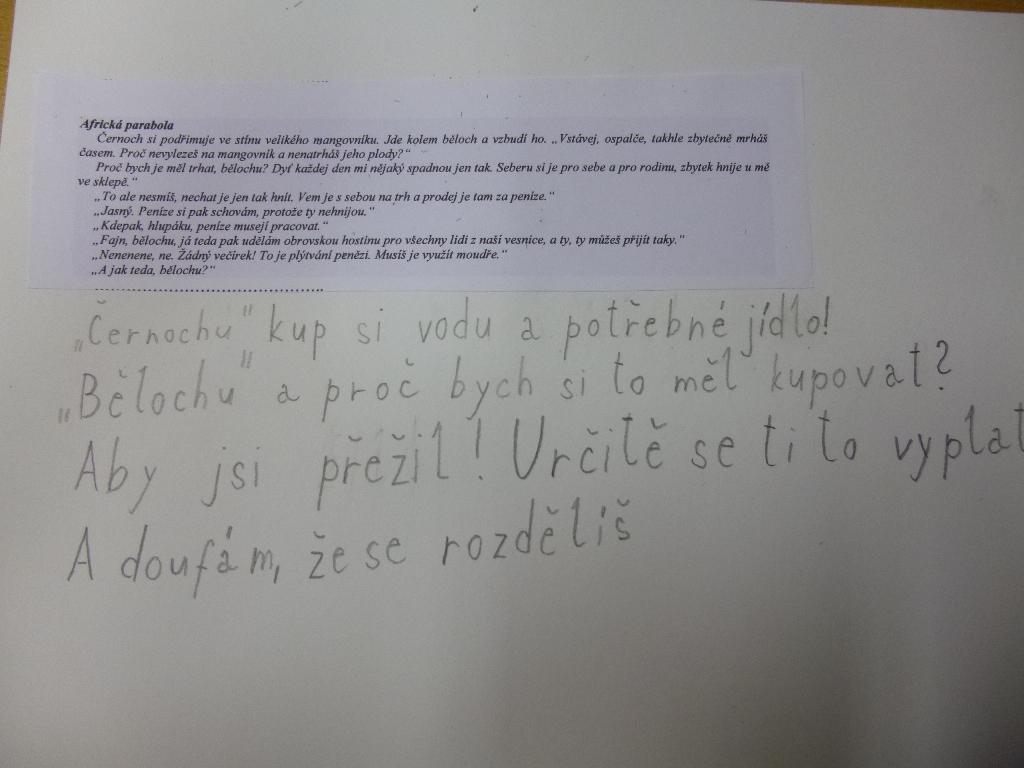 Africká parabola
Černoch si podřimuje ve stínu velikého mangovníku. Jde kolem běloch a vzbudí ho. „Vstávej, ospalče, takhle zbytečně mrháš
časem. Proč nevylezeš na mangovník a nenatrháš jeho plody?“
Proč bych je měl trhat, bělochu? Dyť každej den mi nějaký spadnou jen tak. Seberu si je pro sebe a pro rodinu, zbytek hnije u mě
ve sklepě.“
„To ale nesmíš, nechat je jen tak hnít. Vem je s sebou na trh a prodej je tam za peníze.“
„Jasný. Peníze si pak schovám, protože ty nehnijou.“
„Kdepak, hlupáku, peníze musejí pracovat.“
„Fajn, bělochu, já teda pak udělám obrovskou hostinu pro všechny lidi z naší vesnice, a ty, ty můžeš přijít taky.“
„Nenenene, ne. Žádný večírek! To je plýtvání penězi. Musíš je využít moudře.“
„A jak teda, bělochu?“
................................................
„Černochu" kup si vodu a potřebné jídlo!
„Bělochu" a proč bych si to měl kupovat?
Aby jsi přěžil! Určitě se ti to vyplat
A doufám, že se rozdělíš